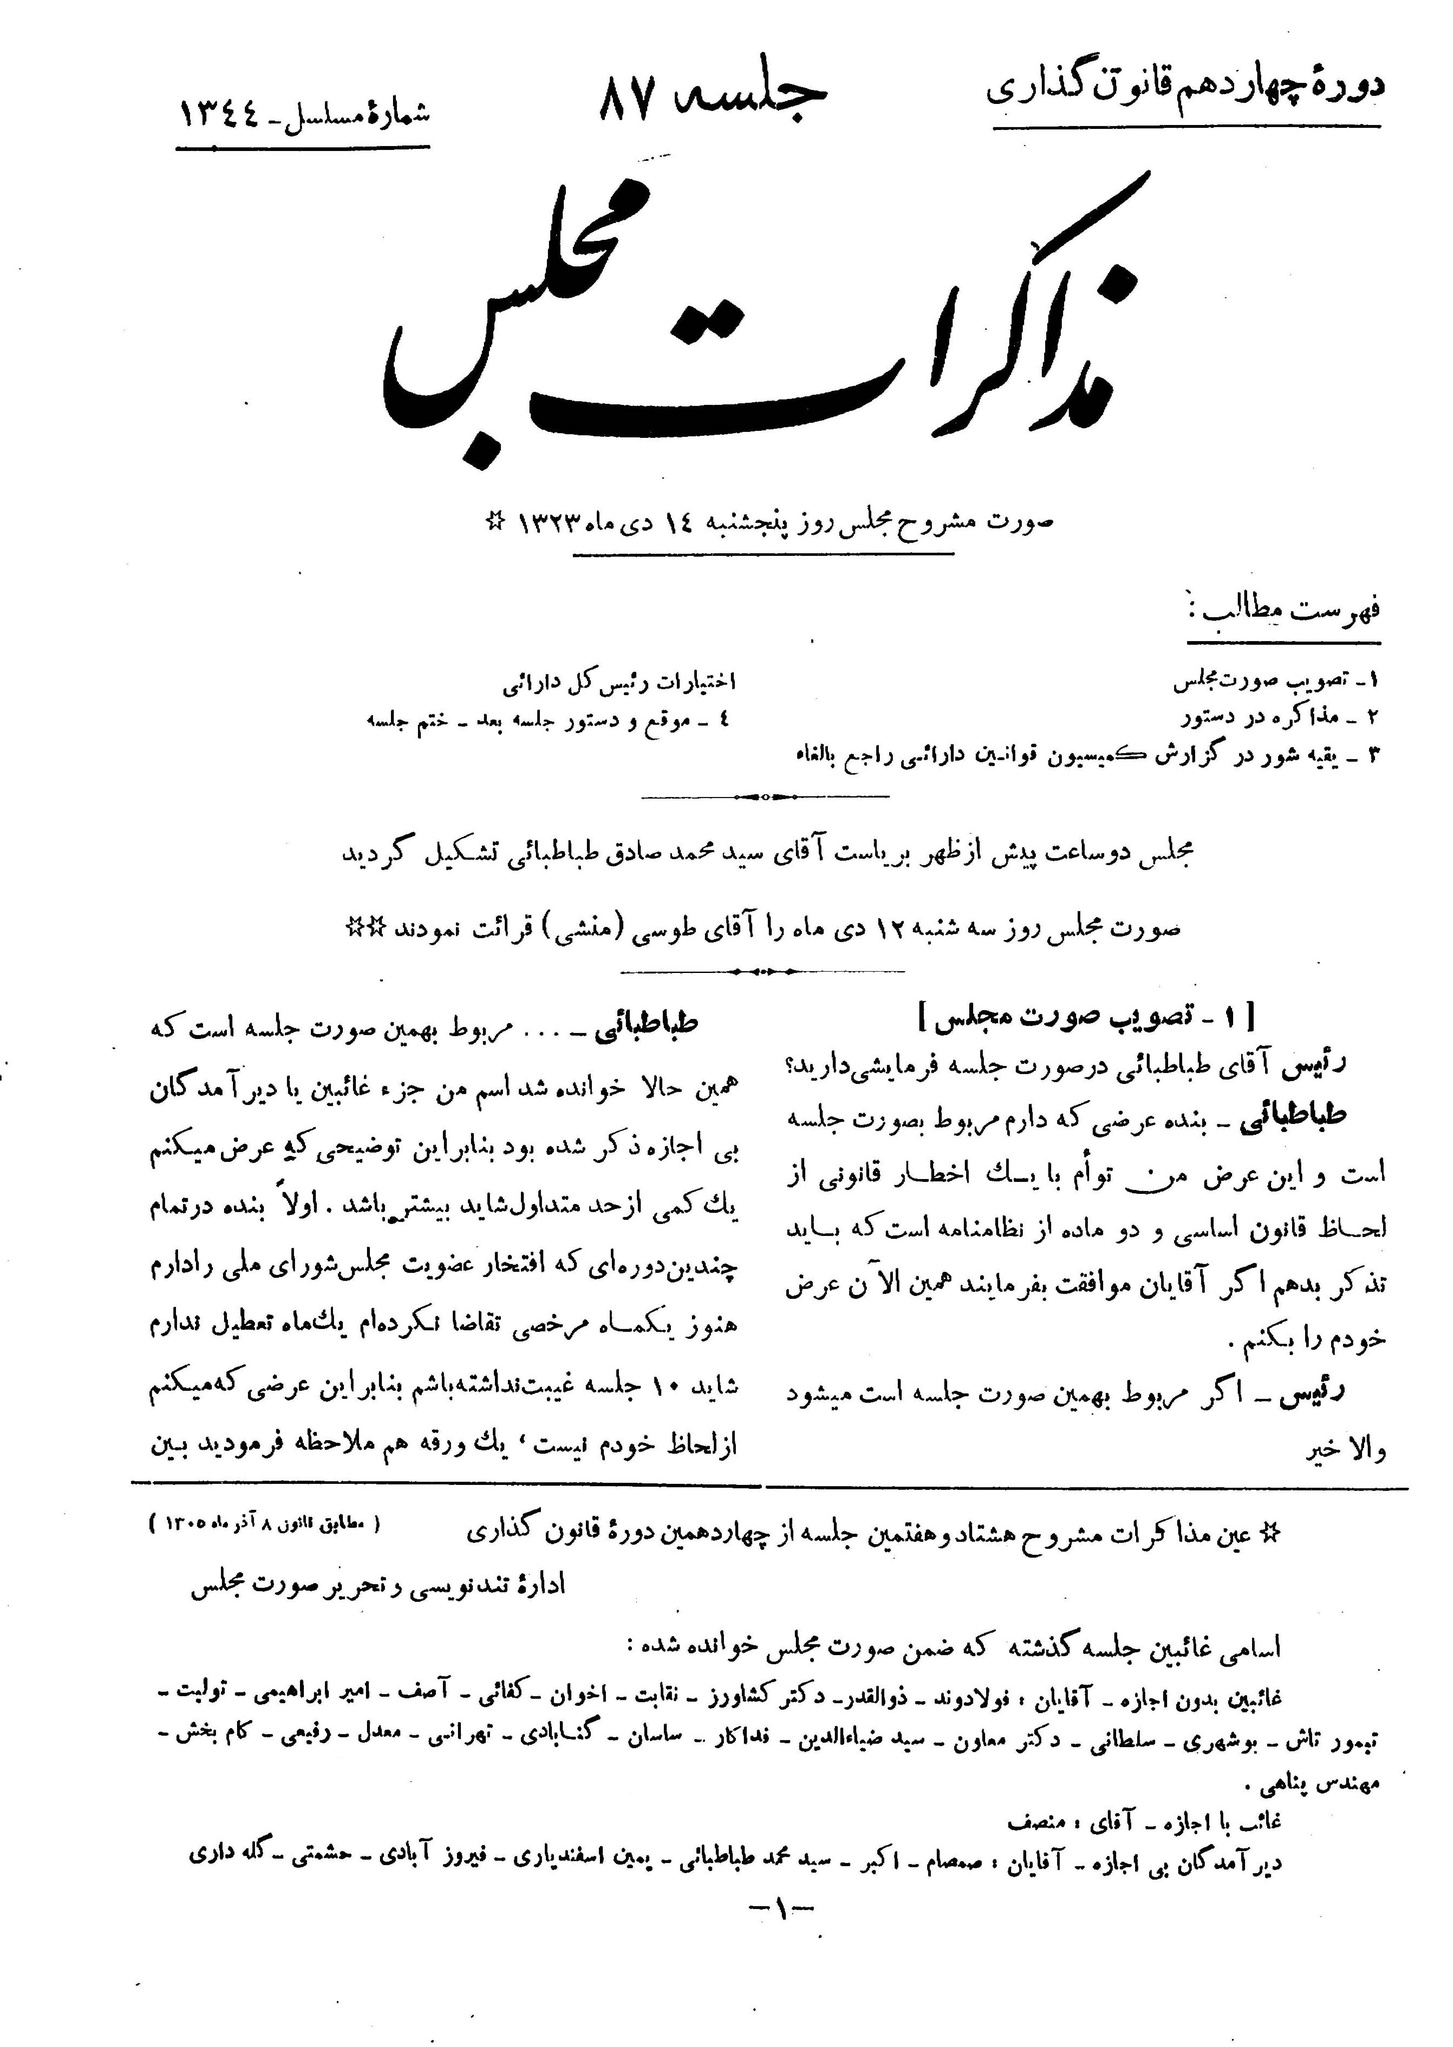 دورهٔ چهاردهم قانون گذاری
جلسه ۸۷
شمارهٔ مسلسل ـ ۱۳٤٤
مذاکرات مجلس
صورت مشروح مجلس روز پنجشنبه ۱٤ دی ماه ۱۳۲۳ ☆
فهرست مطالب :
۱ـ تصویب صورت مجلس
۲ ـ مذاکره در دستور
۳ ـ بقیه شور در گزارش کمیسیون قوانین دارائی راجع بالغاء
اختیارات رئیس کل دارائی
٤ ـ موقع و دستور جلسه بعد ـ ختم جلسه
مجلس دو ساعت پیش از ظهر بریاست آقای سید محمد صادق طباطبائی تشکیل گردید
صورت مجلس روز سه شنبه ۱۲ دی ماه را آقای طوسی (منشی) قرائت نمودند ☆☆
[ ۱ ـ تصویب صورت مجلس ]
رئیس آقای طباطبائی درصورت جلسه فرمایشی دارید؟
طباطبائی ـ بنده عرضی که دارم مربوط بصورت جلسه
است و این عرض من توأم با یک اخطار قانونی از
لحاظ قانون اساسی و دو ماده از نظامنامه است که باید
تذکر بدهم اگر آقایان موافقت بفرمایند همین الآن عرض
خودم را بکنم .
رئیس ـ اگر مربوط بهمین صورت جلسه است میشود
والا خیر
طباطبائی ـ ... مربوط بهمین صورت جلسه است که
همین حالا خوانده شد اسم من جزء غائبین یا دیر آمدگان
بی اجازه ذکر شده بود بنابراین توضیحی که عرض میکنم
یک کمی از حد متداول شاید بیشتر باشد . اولاً بنده درتمام
چندین دوره ای که افتخار عضویت مجلس شورای ملی را دارم
هنوز یکماه مرخصی تقاضا نکرده ام یک ماه تعطیل ندارم
شاید ۱۰ جلسه غیبت نداشته باشم بنابر این عرضی که میکنم
از لحاظ خودم نیست ، یک ورقه هم ملاحظه فرمودید بین
☆ عین مذاکرات مشروح هشتاد و هفتمین جلسه از چهاردهمین دورهٔ قانون گذاری
( مطابق قانون ۸ آذر ماه ۱۳۰٥ )
ادارهٔ تند نویسی و تحریر صورت مجلس
اسامی غائبین جلسه گذشته که ضمن صورت مجلس خوانده شده :
غائبین بدون اجازه ـ آقایان : فولادوند ـ ذوالقدر ـ دکتر کشاورز ـ نقابت ـ اخوان ـ کفائی ـ آصف ـ امیر ابراهیمی ـ تولیت ـ
تیمور تاش ـ بوشهری ـ سلطانی ـ دکتر معاون ـ سید ضیاءالدین ـ فداکار ـ ساسان ـ گنابادی ـ تهرانی ـ معدل ـ رفیعی ـ کام بخش ـ
مهندس پناهی .
غائب با اجازه ـ آقای : منصف
دیر آمدگان بی اجازه ـ آقایان : صمصام ـ اکبر ـ سید محمد طباطبائی ـ یمین اسفندیاری ـ فیروز آبادی ـ حشمتی ـ گله داری
ـ۱ـ